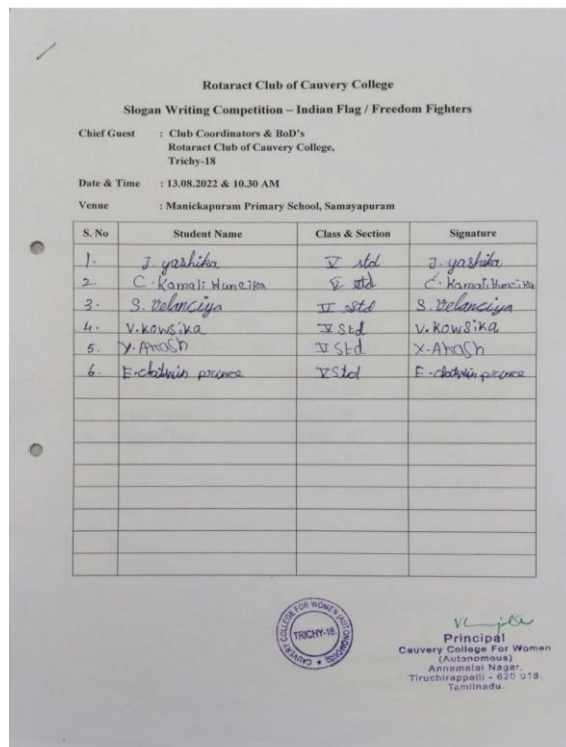 Rotaract Club of Cauvery College
Slogan Writing Competition – Indian Flag / Freedom Fighters
Chief Guest : Club Coordinators & BoD's
Rotaract Club of Cauvery College,
Trichy-18
Date & Time : 13.08.2022 & 10.30 AM
Venue : Manickapuram Primary School, Samayapuram
S. No Student Name Class & Section Signature
1. J. yashika V std J. yashika
2. C. Kamali Huncika V std C. Kamali Huncika
3. S. Velanciya std S. Velanciya
4. V. Kowsika V Std V. Kowsika
5. Y. Akash V Std Y. Akash
6. E. prince V Std E. prince
CAUVERY COLLEGE FOR WOMEN (AUTONOMOUS)
TRICHY-18.
Principal
Cauvery College For Women
(Autonomous)
Annamalai Nagar,
Tiruchirappalli - 620 018.
Tamilnadu.